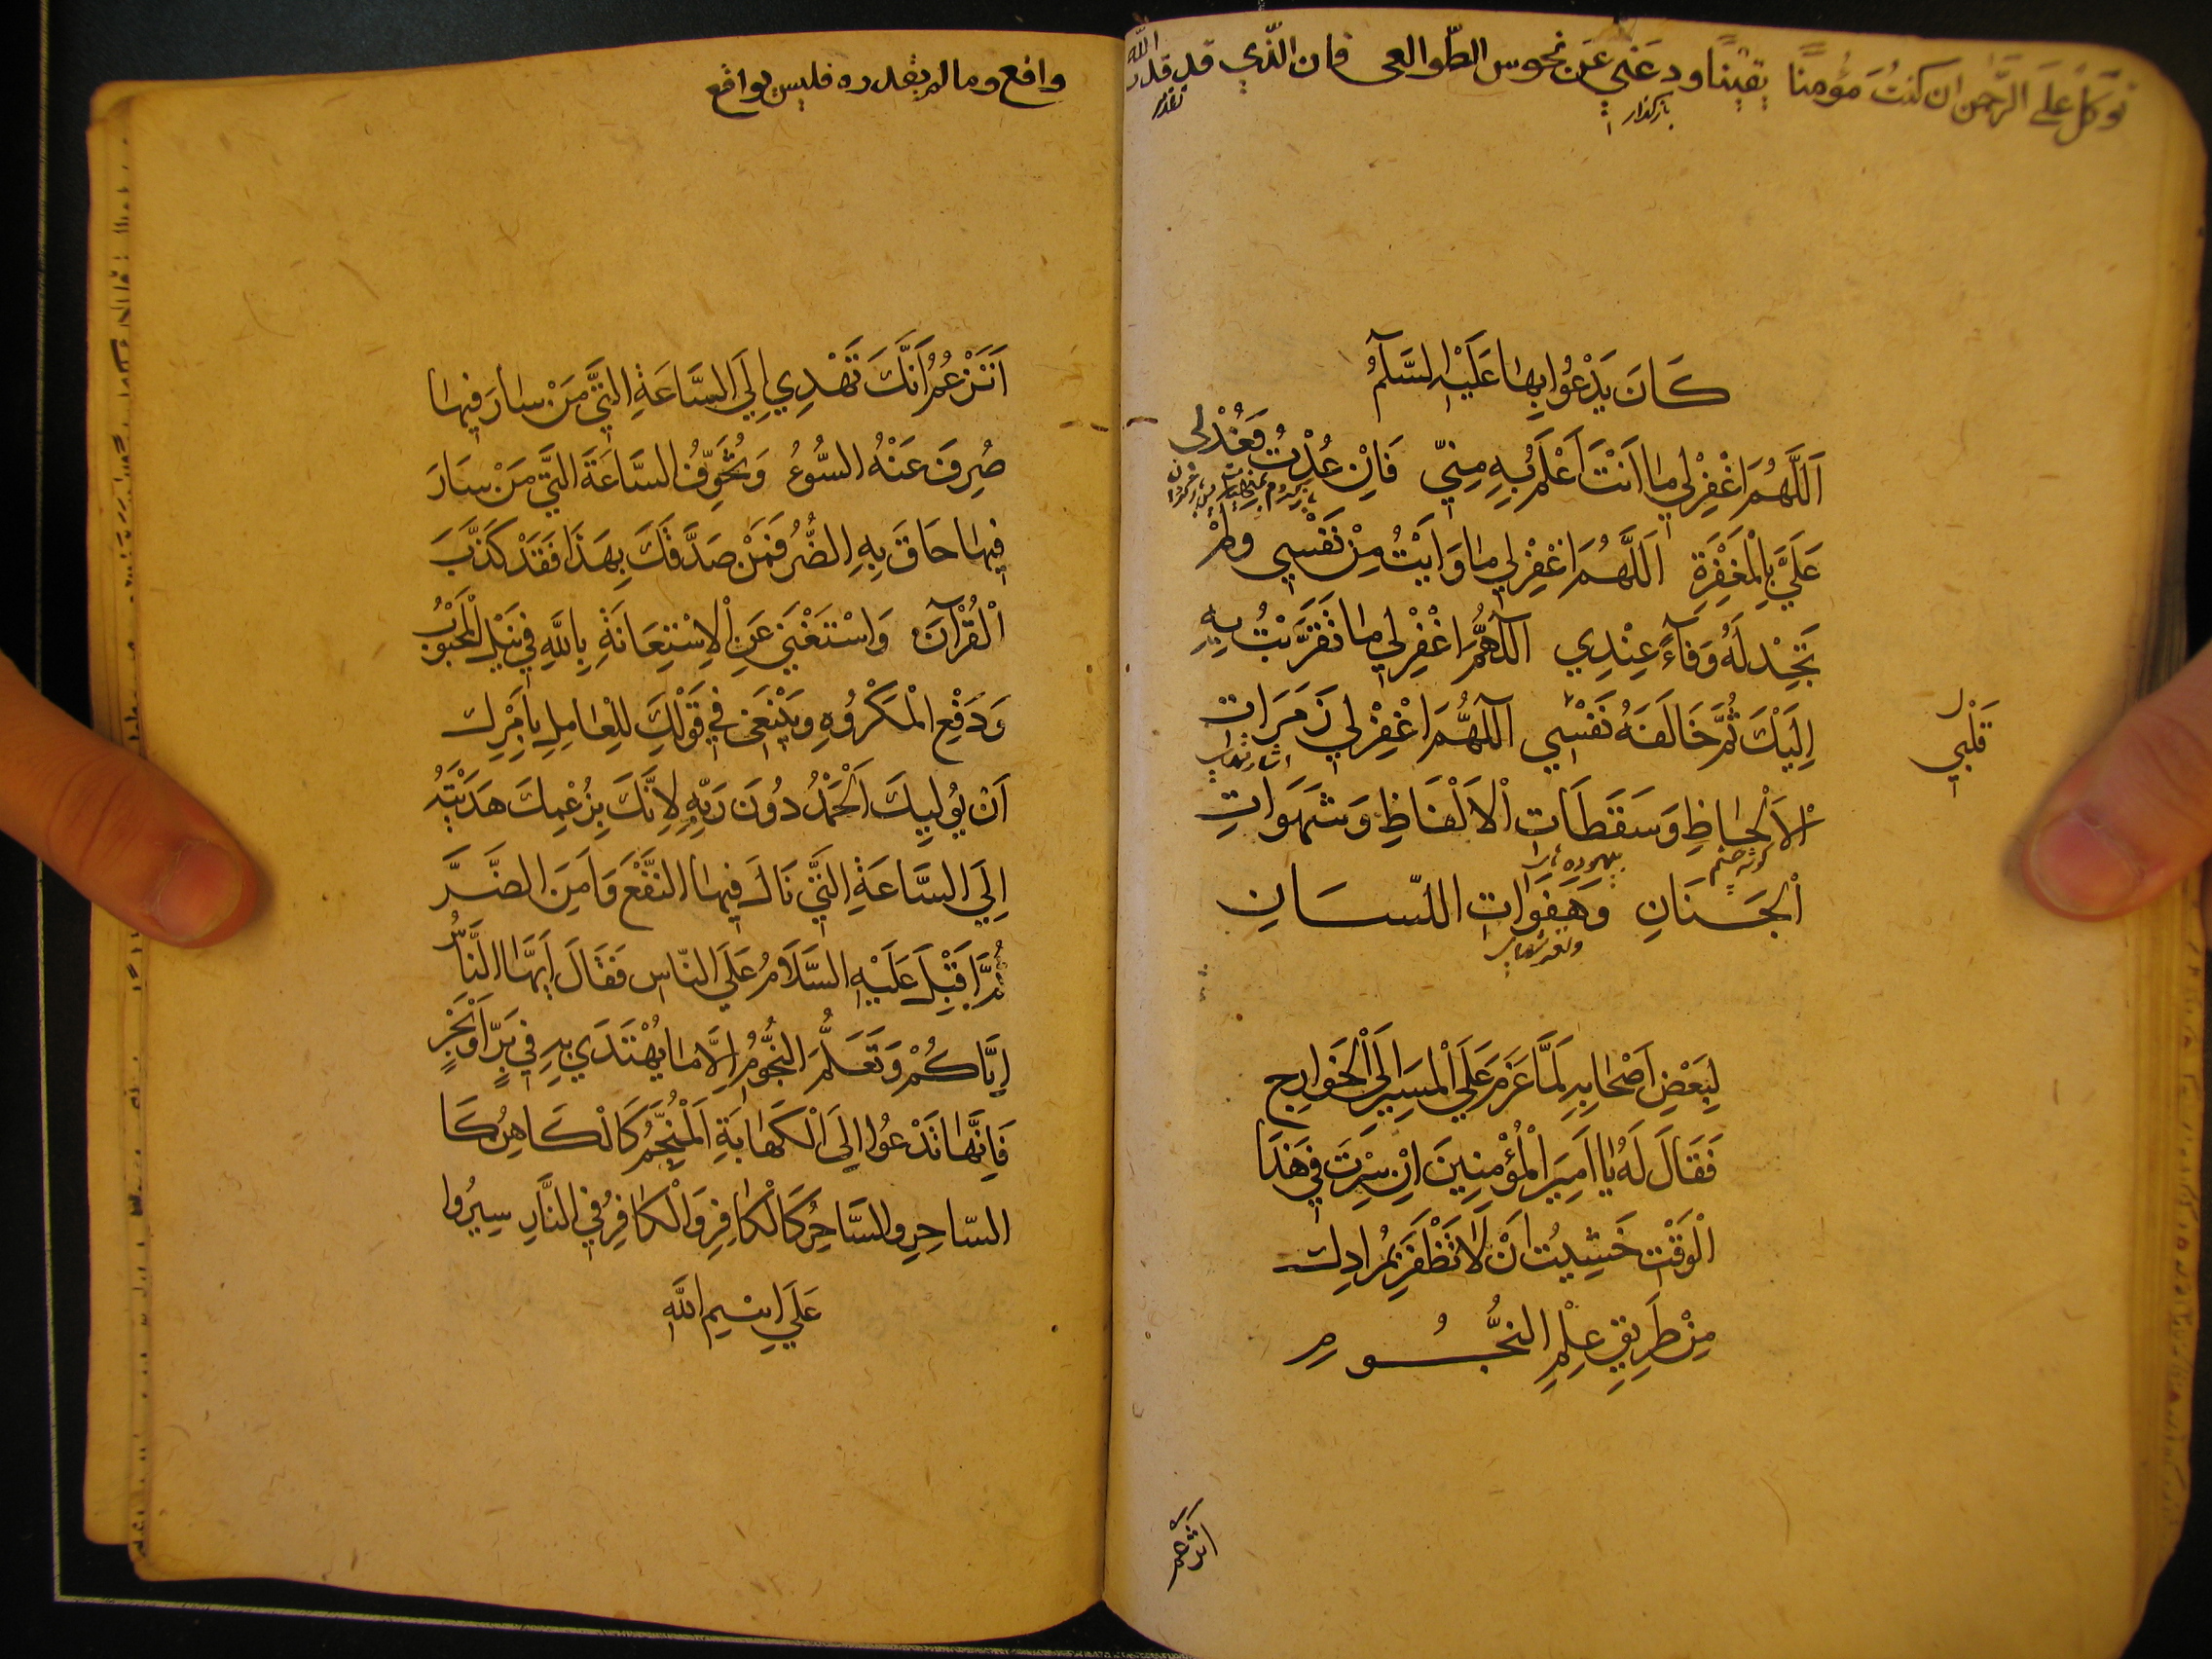 توكل على الرحمن ان كنت مؤمنا يقينا ودعني عن نحوس الطوالع فان الذي قد قدر الله
بازگذار
كَانَ يَدْعُوا بِهَا عَلَيْهِ السَّلَامُ
اَللَّهُمَّ اغْفِرْ لِي مَا اَنْتَ اَعْلَمُ بِهِ مِنِّي فَاِنْ عُدْتُ فَعُدْ لِي
عَلَيَّ بِالْمَغْفِرَةِ اَللَّهُمَّ اغْفِرْ لِي مَا وَاَيْتُ مِنْ نَفْسِي وَلَمْ
تَجِدْ لَهُ وَفَآءً عِنْدِي اَللَّهُمَّ اغْفِرْ لِي مَا تَقَرَّبْتُ بِهِ
اِلَيْكَ ثُمَّ خَالَفَهُ نَفْسِي اَللَّهُمَّ اغْفِرْ لِي رَمَزَاتِ
قَلْبِي
الْاَلْحَاظِ وَسَقَطَاتِ الْاَلْفَاظِ وَشَهَوَاتِ
الْجَنَانِ وَهَفَوَاتِ اللِّسَانِ
لِبَعْضِ اَصْحَابِهِ لَمَّا عَزَمَ عَلَى الْمَسِيرِ اِلَى الْخَوَارِجِ
فَقَالَ لَهُ يَا اَمِيرَ الْمُؤْمِنِينَ اِنْ سِرْتَ فِي هَذَا
الْوَقْتِ خَشِيتُ اَنْ لَا تَظْفَرَ بِمُرَادِكَ
مِنْ طَرِيقِ عِلْمِ النُّجُومِ
اتزعم
واقع وما لم يقدره فليس بواقع
اَتَزْعُمُ اَنَّكَ تَهْدِي اِلَى السَّاعَةِ الَّتِي مَنْ سَارَ فِيهَا
صُرِفَ عَنْهُ السُّوءُ وَتُخَوِّفُ السَّاعَةَ الَّتِي مَنْ سَارَ
فِيهَا حَاقَ بِهِ الضُّرُّ فَمَنْ صَدَّقَكَ بِهَذَا فَقَدْ كَذَّبَ
الْقُرْآنَ وَاسْتَغْنَى عَنِ الْاِسْتِعَانَةِ بِاللَّهِ فِي نَيْلِ الْمَحْبُوبِ
وَدَفْعِ الْمَكْرُوهِ وَيَنْبَغِي فِي قَوْلِكَ لِلْعَامِلِ بِاَمْرِكَ
اَنْ يُولِيَكَ الْحَمْدَ دُونَ رَبِّهِ لِاَنَّكَ بِزُعْمِكَ هَدَيْتَهُ
اِلَى السَّاعَةِ الَّتِي نَالَ فِيهَا النَّفْعَ وَاَمِنَ الضَّرَّ
ثُمَّ اَقْبَلَ عَلَيْهِ السَّلَامُ عَلَى النَّاسِ فَقَالَ اَيُّهَا النَّاسُ
اِيَّاكُمْ وَتَعَلُّمَ النُّجُومِ اِلَّا مَا يُهْتَدَى بِهِ فِي بَرٍّ اَوْ بَحْرٍ
فَاِنَّهَا تَدْعُوا اِلَى الْكَهَانَةِ اَلْمُنَجِّمُ كَالْكَاهِنِ كَا
السَّاحِرِ وَالسَّاحِرُ كَالْكَافِرِ وَالْكَافِرُ فِي النَّارِ سِيرُوا
عَلَى اسْمِ اللَّهِ